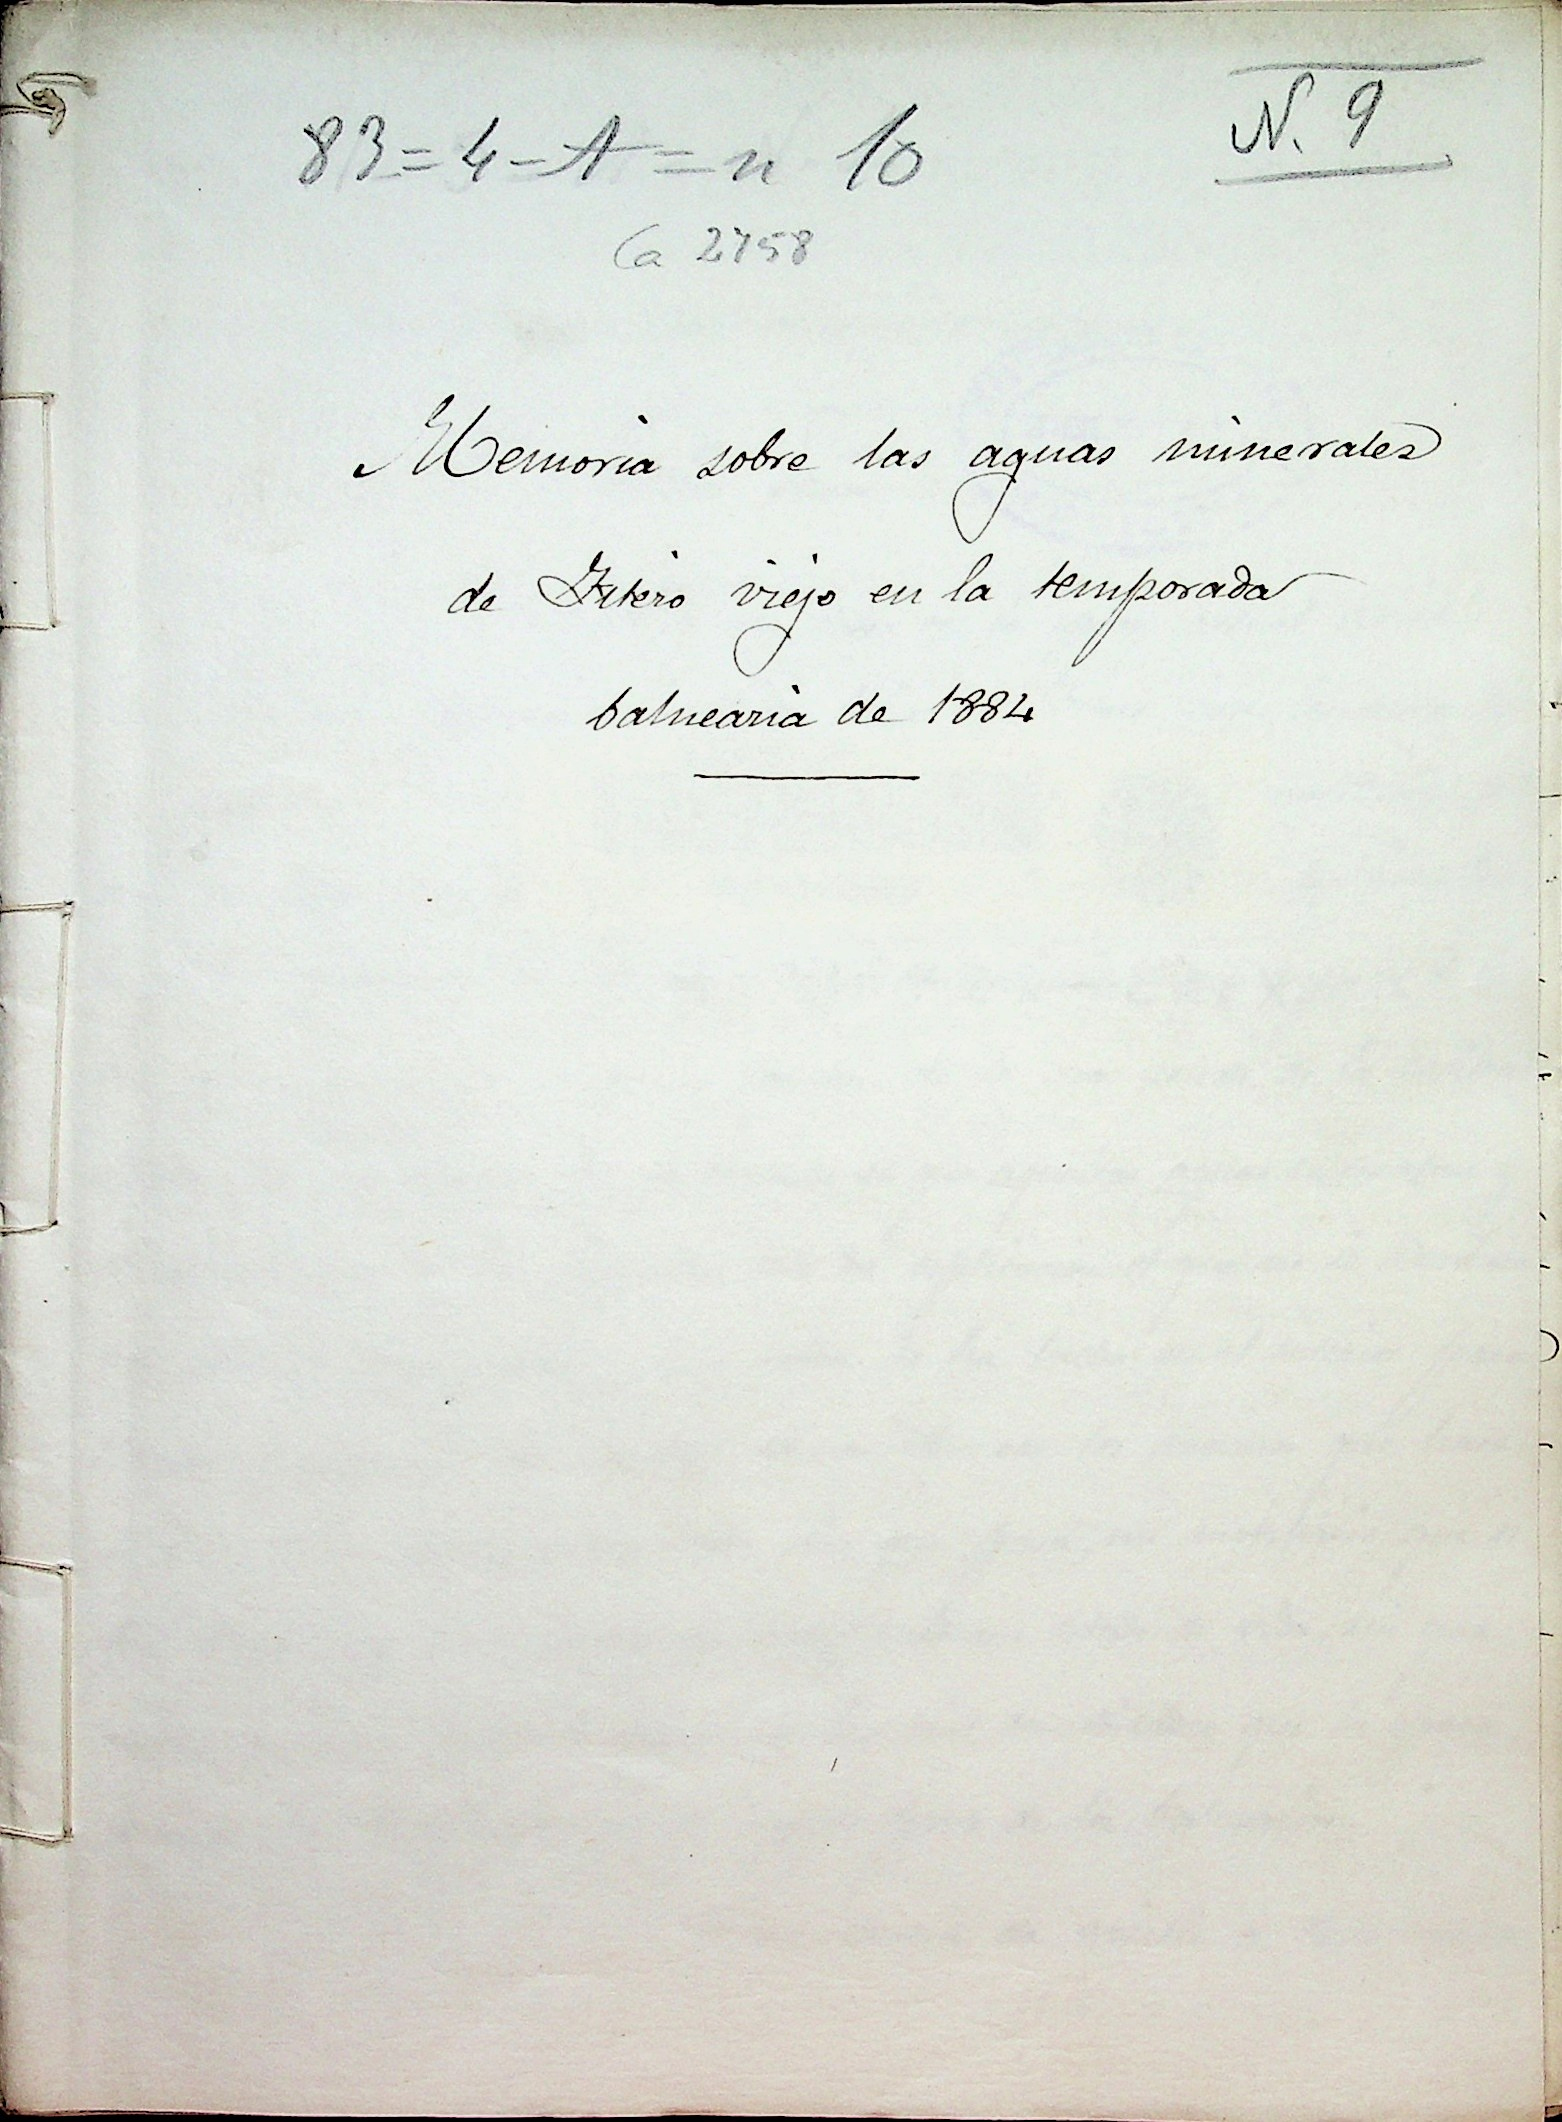 N. 9
83=4-A=n 10
Ca 2758
Memoria sobre las aguas minerales
de Fitero viejo en la temporada
balnearia de 1884